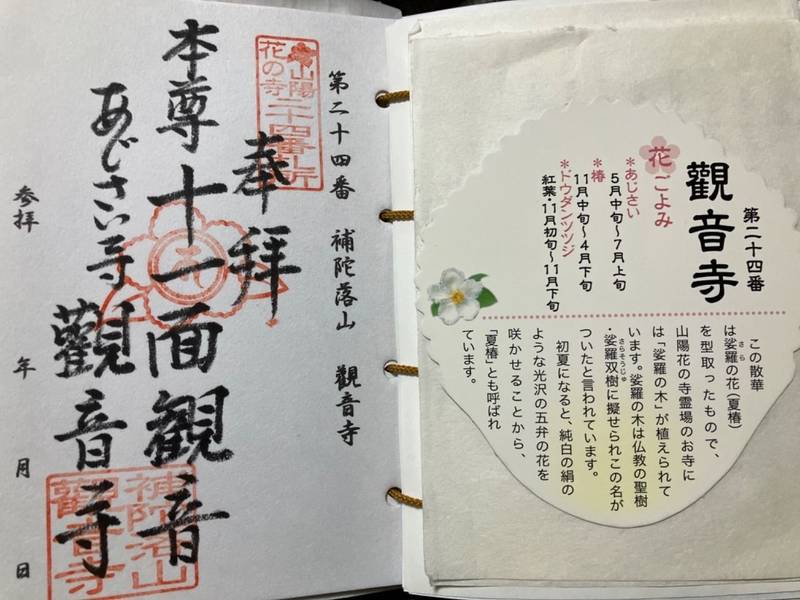 第二十四番
觀音寺
花ごよみ
*あじさい
5月中旬〜7月上旬
*椿
11月中旬〜4月下旬
*ドウダンツツジ
紅葉・1月初旬〜11月下旬
この散華
は娑羅の花(夏椿)
さら
を型取ったもので、
山陽花の寺霊場のお寺に
は「娑羅の木」が植えられて
います。娑羅の木は仏教の聖樹
・娑羅双樹に擬せられこの名が
さらそうじゅ
ついたと言われています。
初夏になると、純白の絹の
ような光沢の五弁の花を
咲かせることから、
「夏椿」とも呼ばれ
ています。
第二十四番 補陀落山 觀音寺
山陽
花の寺
二十四番札所
奉拝
本尊十一面観音
あじさい寺
觀音寺
補陀落山
觀音寺
参拝 年 月 日